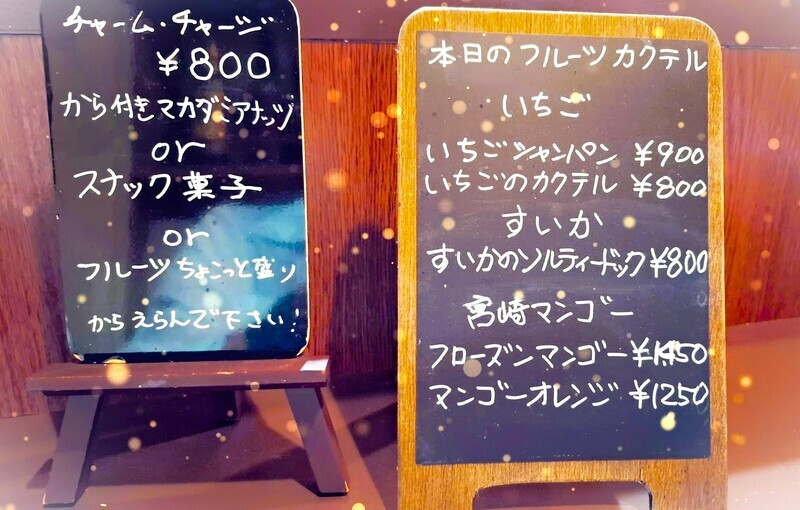 チャーム・チャージ
¥800
から付きマカダミアナッツ
or
スナック菓子
or
フルーツちょこっと盛り
からえらんで下さい!
本日のフルーツカクテル
いちご
いちごシャンパン ¥900
いちごのカクテル ¥800
すいか
すいかのソルティードック ¥800
宮崎マンゴー
フローズンマンゴー ¥1450
マンゴーオレンジ ¥1250